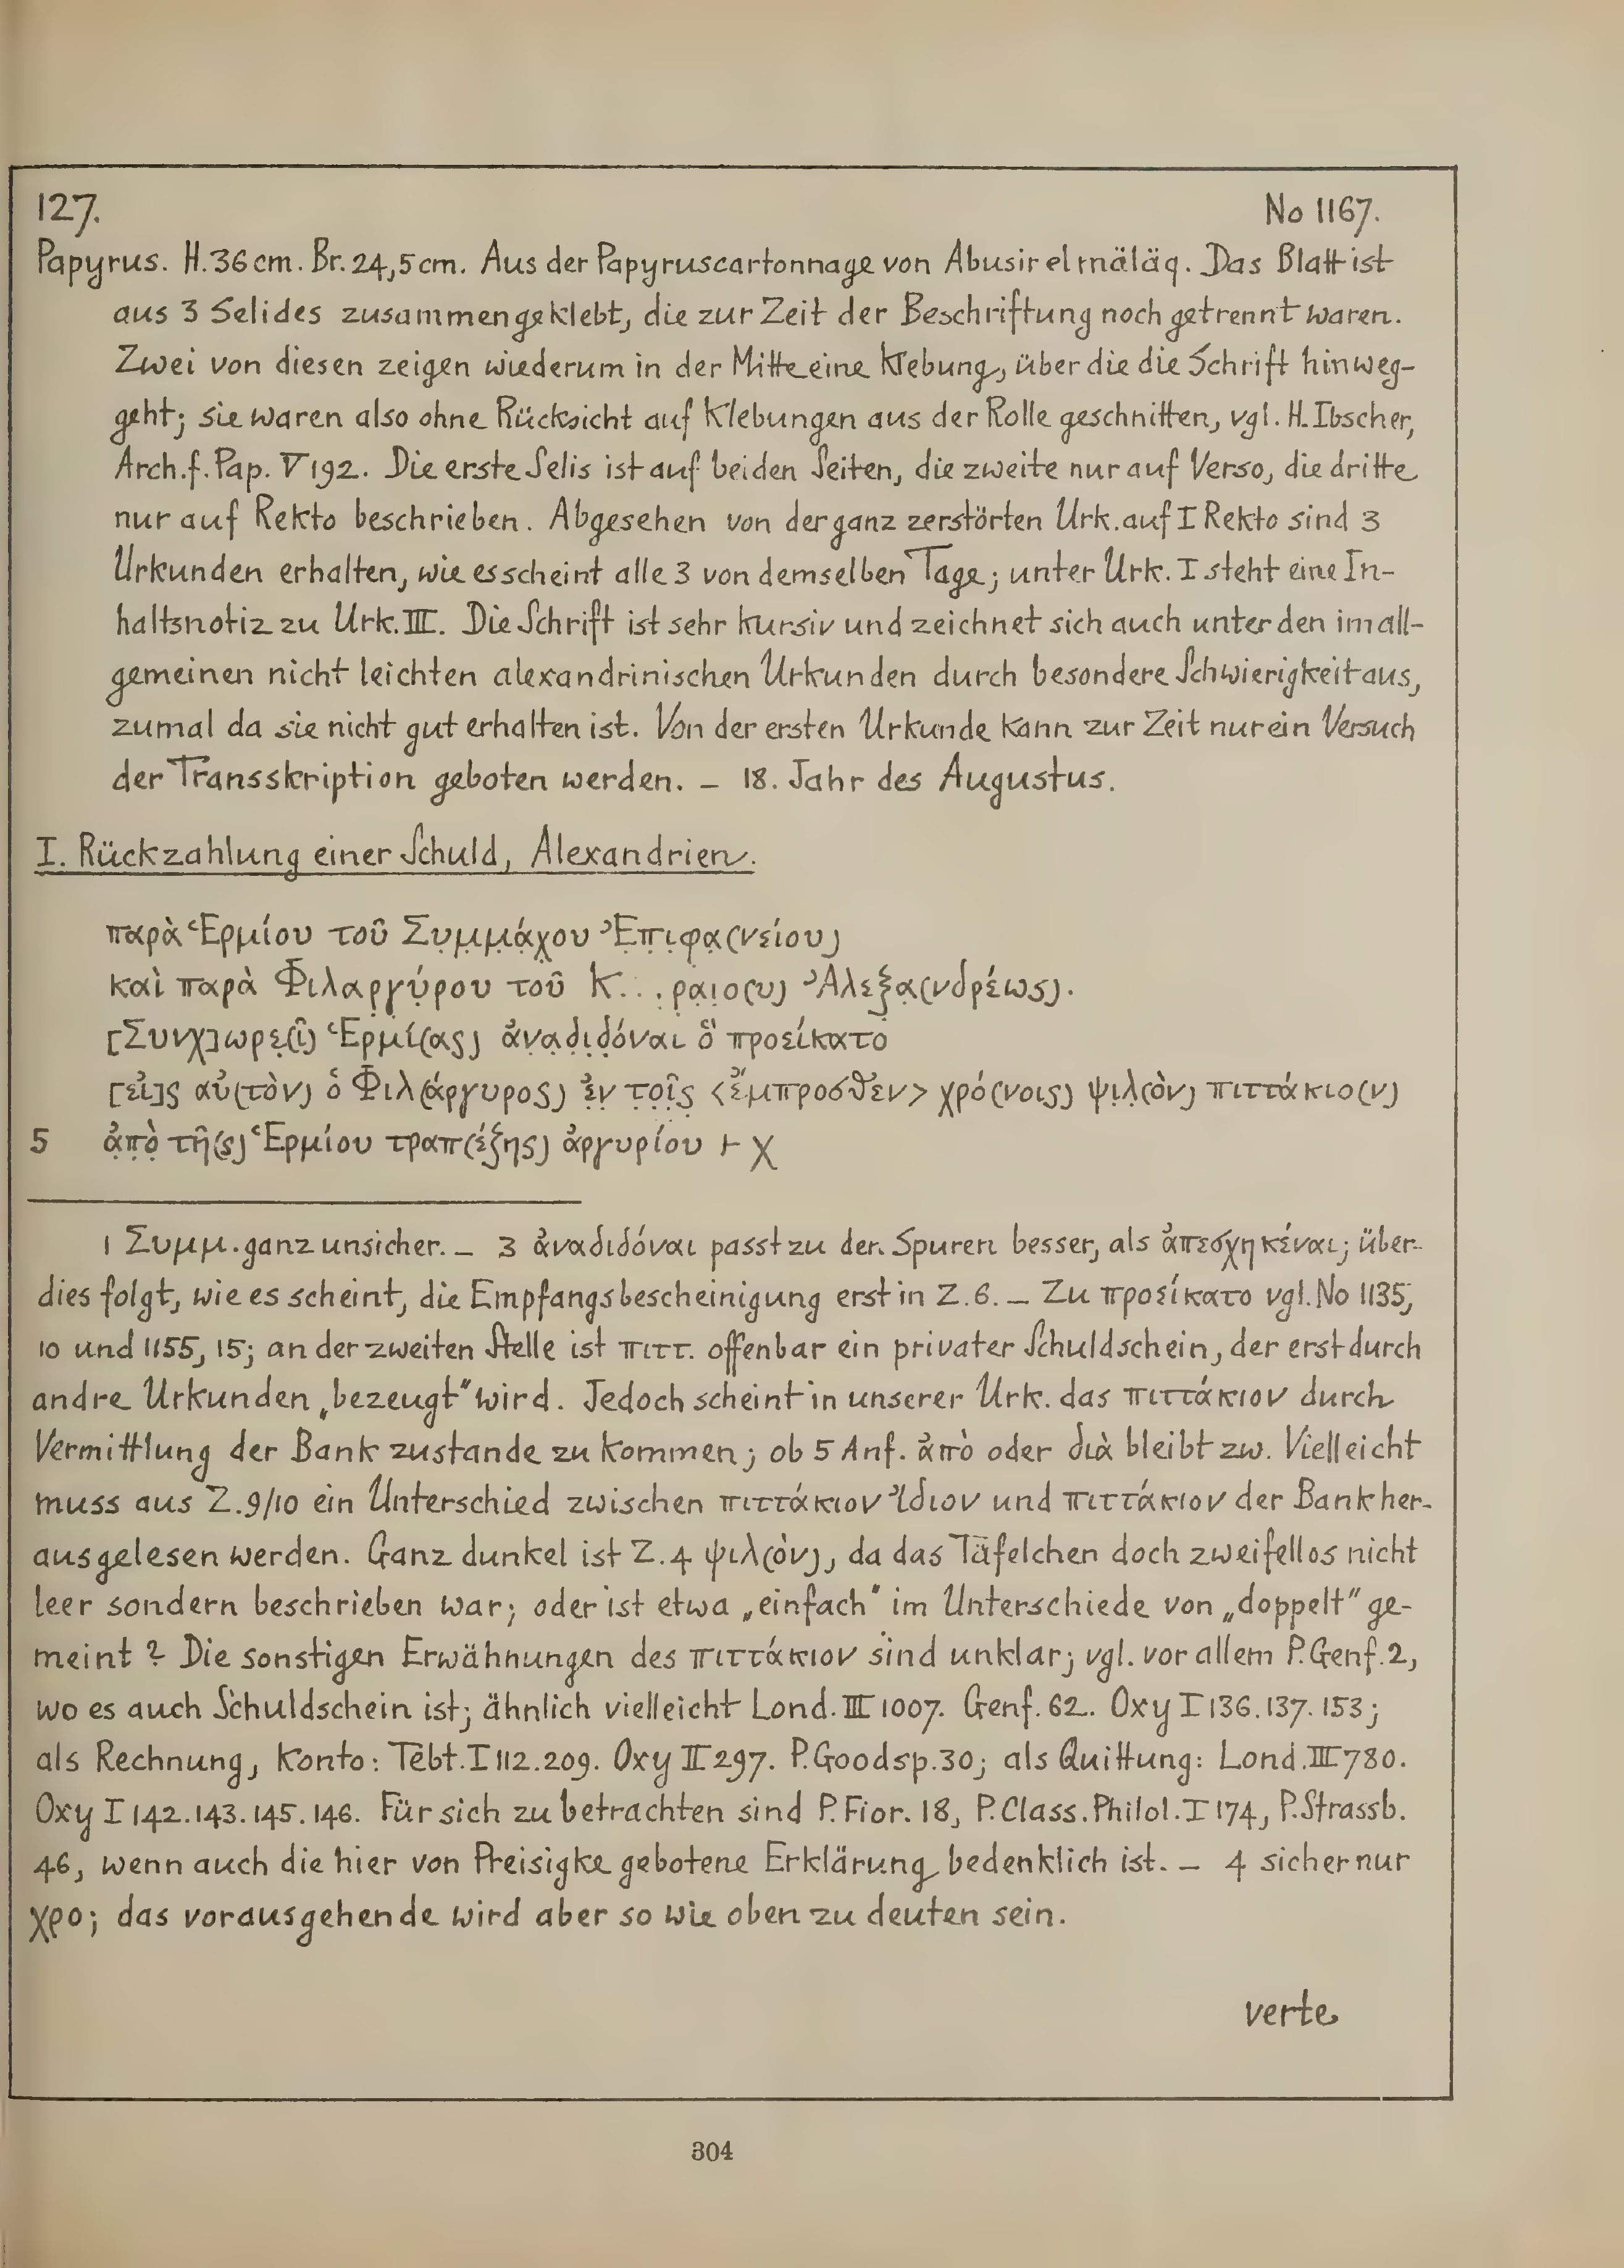 127. No 1167.
Papyrus. H. 36 cm. Br. 24,5 cm. Aus der Papyruscartonnage von Abusir el mäläq. Das Blatt ist
aus 3 Selides zusammengeklebt, die zur Zeit der Beschriftung noch getrennt waren.
Zwei von diesen zeigen wiederum in der Mitte eine Klebung, über die die Schrift hinweg-
geht; sie waren also ohne Rücksicht auf Klebungen aus der Rolle geschnitten, vgl. H. Ibscher,
Arch. f. Pap. V 192. Die erste Selis ist auf beiden Seiten, die zweite nur auf Verso, die dritte
nur auf Rekto beschrieben. Abgesehen von der ganz zerstörten Urk. auf I Rekto sind 3
Urkunden erhalten, wie es scheint alle 3 von demselben Tage; unter Urk. I steht eine In-
haltsnotiz zu Urk. III. Die Schrift ist sehr kursiv und zeichnet sich auch unter den im all-
gemeinen nicht leichten alexandrinischen Urkunden durch besondere Schwierigkeit aus,
zumal da sie nicht gut erhalten ist. Von der ersten Urkunde kann zur Zeit nur ein Versuch
der Transskription geboten werden. – 18. Jahr des Augustus.
I. Rückzahlung einer Schuld, Alexandrien.
παρὰ Ἑρμίου τοῦ Σ̣υ̣μ̣μ̣ά̣χ̣ου Ἐ̣π̣ι̣φ̣α̣(νείου)
καὶ παρὰ Φιλαρ̣γ̣ύ̣ρου τοῦ Κ . . . ρ̣α̣ι̣ο(υ) Ἀλεξα̣(νδρέως).
[Συνχ]ωρε̣(ῖ) Ἑρ̣μ̣ί̣(ας) ἀ̣ν̣α̣δ̣ι̣δ̣όναι ὃ προείκατο
[εἰ]ς αὐ(τὸν) ὁ Φιλ(άργυρος) ἐ̣ν τ̣ο̣ῖ̣ς̣ <ἔμπροσθεν> χρό(νοις) ψ̣ι̣λ̣(ὸν) πιττάκιο(ν)
5 ἀ̣π̣ὸ̣ τῆ(ς) Ἑρμίου τραπ(έζης) ἀργυρίου ⊢ χ
1 Συμμ. ganz unsicher. – 3 ἀναδιδόναι passt zu den Spuren besser, als ἀπεσχηκέναι; über-
dies folgt, wie es scheint, die Empfangsbescheinigung erst in Z. 6. – Zu προείκατο vgl. No 1135,
10 und 1155, 15; an der zweiten Stelle ist πιττ. offenbar ein privater Schuldschein, der erst durch
andre Urkunden „bezeugt“ wird. Jedoch scheint in unserer Urk. das πιττάκιον durch
Vermittlung der Bank zustande zu kommen; ob 5 Anf. ἀπὸ oder διὰ bleibt zw. Vielleicht
muss aus Z. 9/10 ein Unterschied zwischen πιττάκιον ἴδιον und πιττάκιον der Bank her-
ausgelesen werden. Ganz dunkel ist Z. 4 ψιλ(ὸν), da das Täfelchen doch zweifellos nicht
leer sondern beschrieben war; oder ist etwa „einfach“ im Unterschiede von „doppelt“ ge-
meint? Die sonstigen Erwähnungen des πιττάκιον sind unklar; vgl. vor allem P. Genf. 2,
wo es auch Schuldschein ist; ähnlich vielleicht Lond. III 1007. Genf. 62. Oxy I 136. 137. 153;
als Rechnung, Konto: Tebt. I 112. 209. Oxy II 297. P. Goodsp. 30; als Quittung: Lond. III 780.
Oxy I 142. 143. 145. 146. Für sich zu betrachten sind P. Fior. 18, P. Class. Philol. I 174, P. Strassb.
46, wenn auch die hier von Preisigke gebotene Erklärung bedenklich ist. – 4 sicher nur
χρο; das vorausgehende wird aber so wie oben zu deuten sein.
verte
304